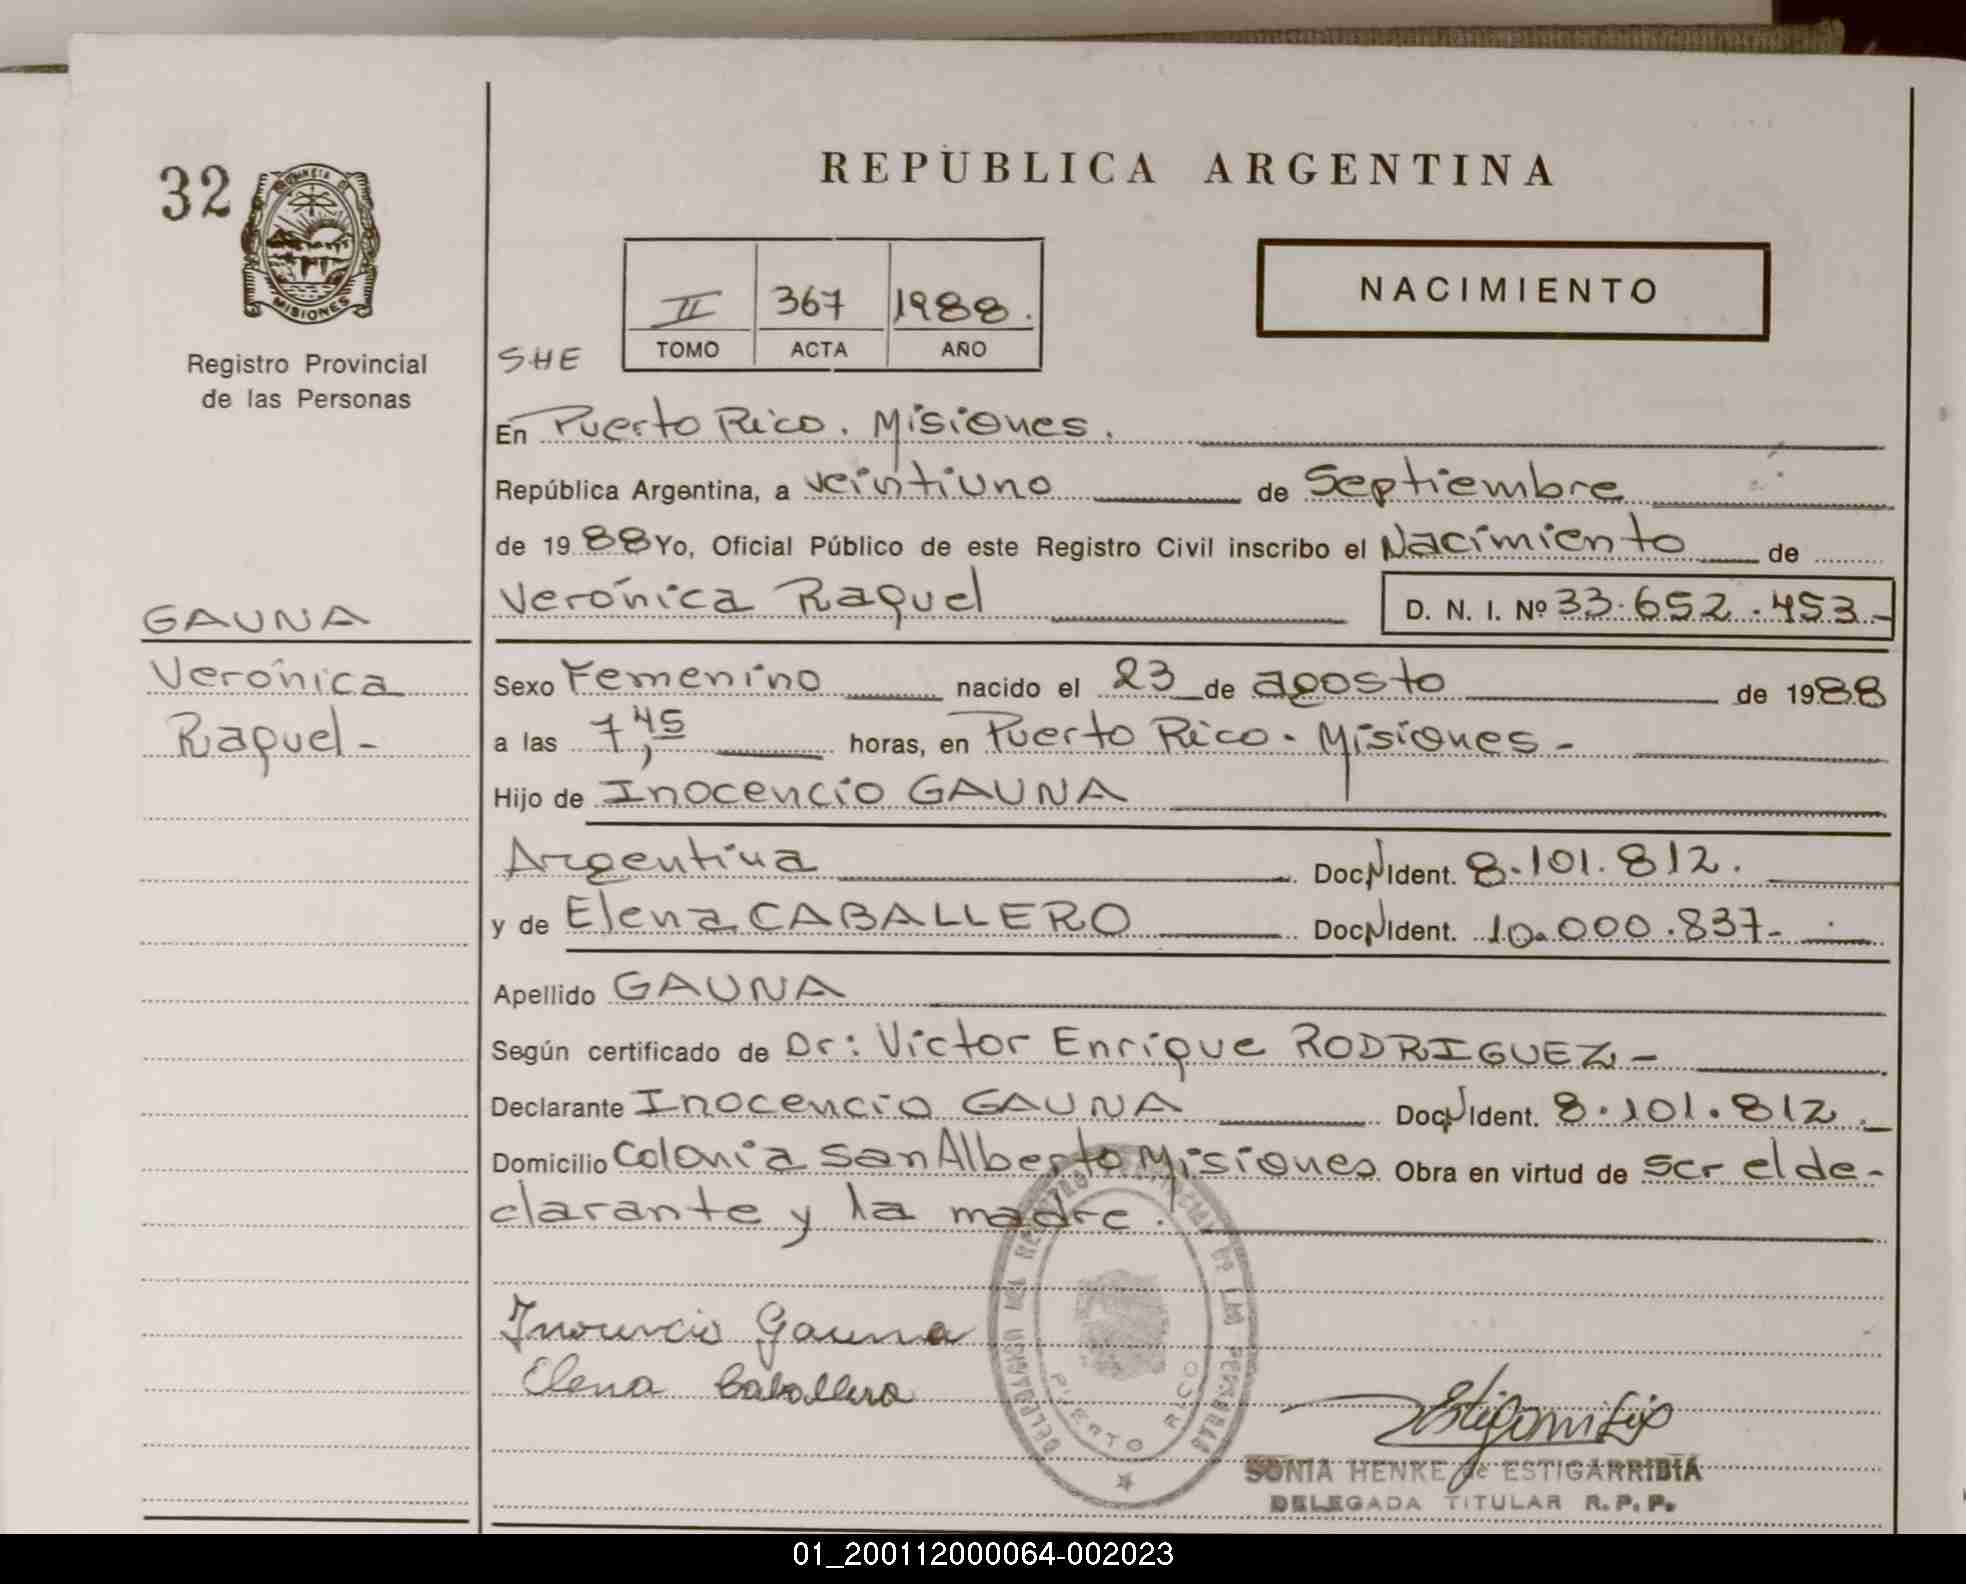 32
PROVINCIA DE
MISIONES
Registro Provincial
de las Personas
GAUNA
Verónica
Raquel -
REPUBLICA ARGENTINA
II 367 1988.
TOMO ACTA AÑO
NACIMIENTO
SHE
En Puerto Rico. Misiones.
República Argentina, a veintiuno de Septiembre
de 1988 Yo, Oficial Público de este Registro Civil inscribo el Nacimiento de
Verónica Raquel D. N. I. Nº 33.652.453.-
Sexo Femenino nacido el 23 de agosto de 1988
a las 7,45 horas, en Puerto Rico. Misiones -
Hijo de Inocencio GAUNA
Argentina Doc. N Ident. 8.101.812.
y de Elena CABALLERO Doc. N Ident. 10.000.837-
Apellido GAUNA
Según certificado de Dr: Victor Enrique RODRIGUEZ -
Declarante Inocencio GAUNA Doc. N Ident. 8.101.812.
Domicilio Colonia San Alberto Misiones Obra en virtud de ser el de-
clarante y la madre.
Inocencio Gauna
Elena Caballero
DELEGACION DEL REGISTRO PROVINCIAL DE LAS PERSONAS
PUERTO RICO
SONIA HENKE de ESTIGARRIBIA
DELEGADA TITULAR R.P.P.
01_200112000064-002023